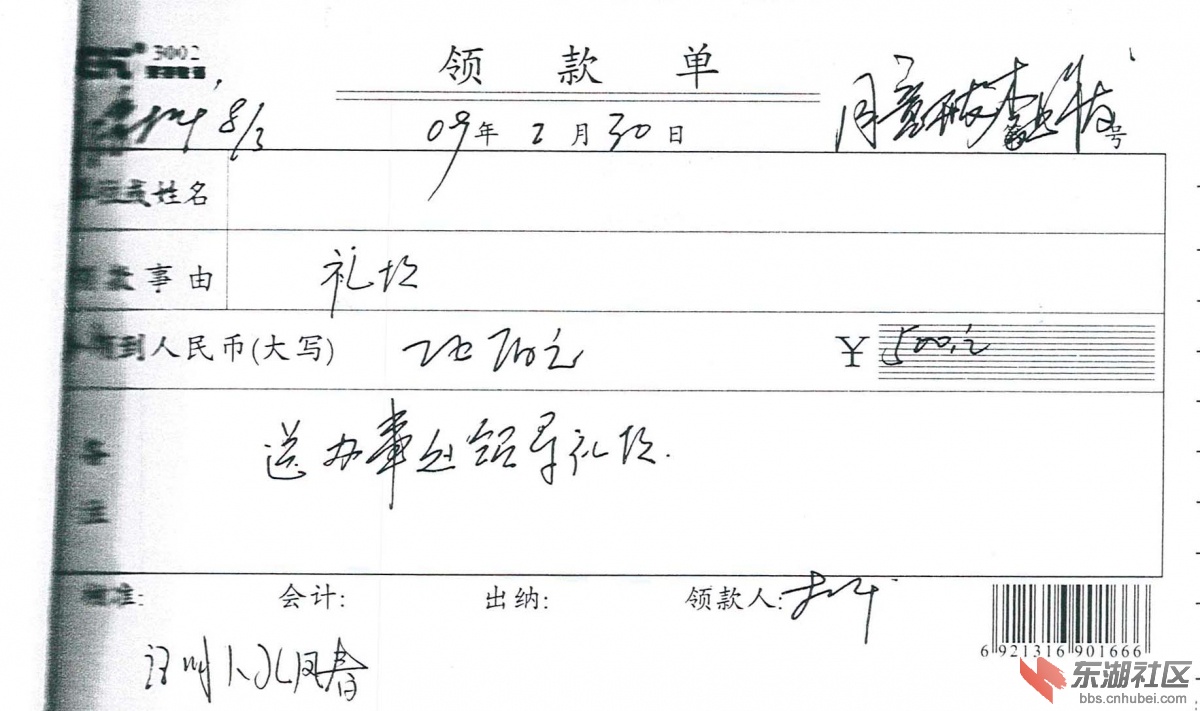 3002
领款单
8/3
09年 2月30日
同意开支 号
姓名
事由 礼款
到人民币(大写) 伍佰元 ¥500元
送办事处领导礼款.
会计: 出纳: 领款人:
证明人
6 921316 901666
东湖社区
bbs.cnhubei.com